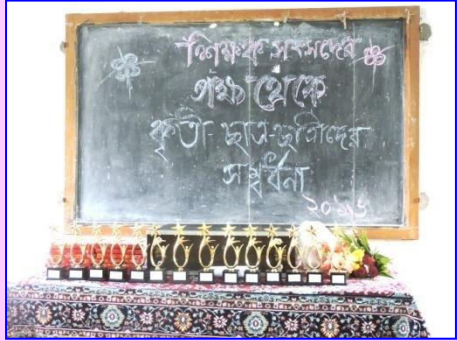 শিক্ষক সংসদের
পক্ষ থেকে
কৃতী ছাত্র-ছাত্রীদের
সম্বর্ধনা
২০১৬